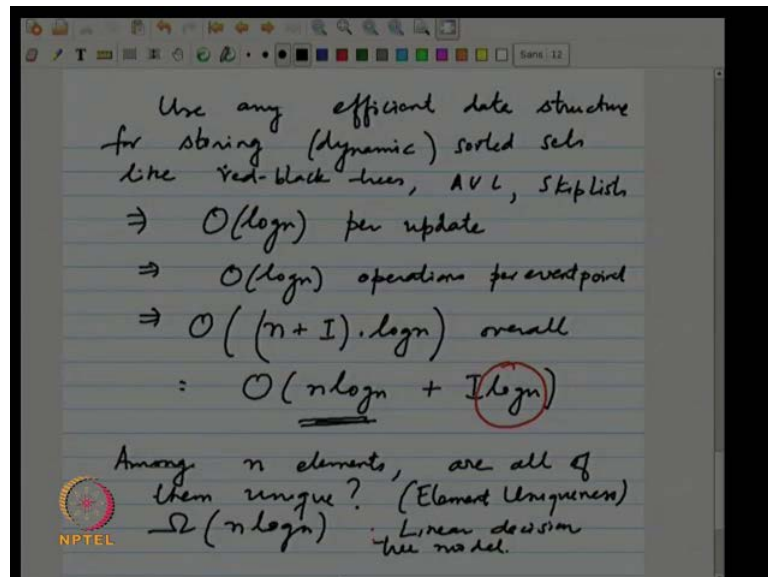 T
Sans 12
Use any efficient data structure
for storing (dynamic) sorted sets
like red-black trees, AVL, Skiplists
⇒ O(logn) per update
⇒ O(logn) operations per event point
⇒ O((n + I).logn) overall
: O(nlogn + Ilogn)
Among n elements, are all of
them unique? (Element Uniqueness)
Ω(nlogn) : Linear decision
tree model.
NPTEL